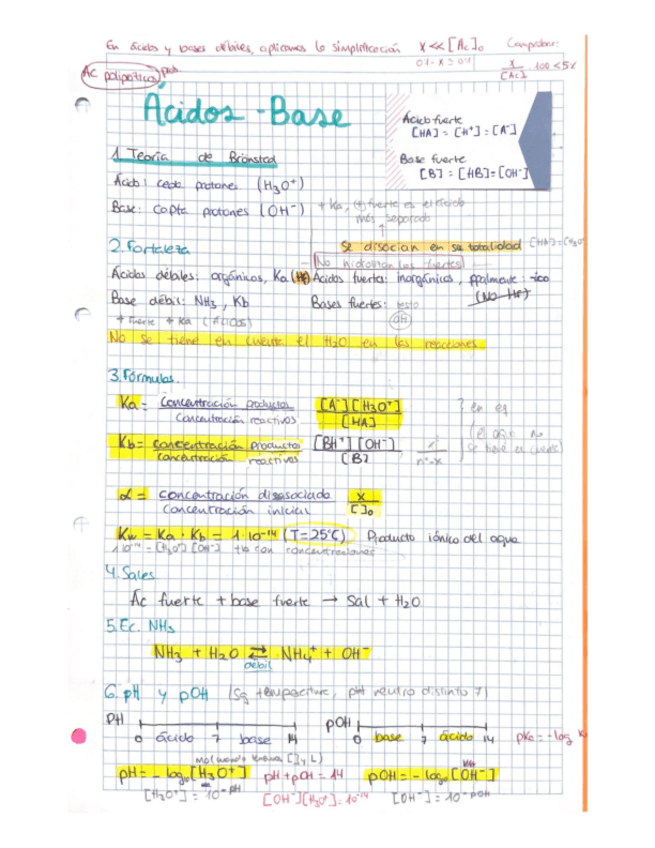 En ácidos y bases débiles, aplicamos la simplificación x << [Ac]₀ Comprobar:
x/[Ac]₀ · 100 < 5%
Ac polipróticos
Ácidos - Base
Ácido fuerte
[HA] = [H⁺] = [A⁻]
Base fuerte
[B] = [HB] = [OH⁻]
1. Teoría de Brönsted
Ácido: cede protones (H₃O⁺)
Base: capta protones (OH⁻)
+ Ka, (+) fuerte es el ácido
más separado
2. Fortaleza
Se disocian en su totalidad
No hidrolizan los fuertes
Ácidos débiles: orgánicos, Ka (HF) Ácidos fuertes: inorgánicos, ppalmente -ico
(No HF)
Base débil: NH₃, Kb Bases fuertes: resto
OH
+ fuerte + Ka (ÁCIDOS)
No se tiene en cuenta el H₂O en las reacciones
3. Fórmulas.
Ka = Concentración productos / Concentración reactivos [A⁻][H₃O⁺] / [HA]
Kb = concentración productos / concentración reactivos [BH⁺][OH⁻] / [B]
en eq
(el agua no
se tiene en cuenta)
α = concentración disasociada / Concentración inicial x / [ ]₀
Kw = Ka · Kb = 1·10⁻¹⁴ (T=25ºC) Producto iónico del agua
10⁻¹⁴ = [H₃O⁺][OH⁻] tb con concentraciones
4. Sales
Ác fuerte + base fuerte → Sal + H₂O
5. Ec. NH₃
NH₃ + H₂O ⇄ NH₄⁺ + OH⁻
débil
6. pH y pOH (Sg temperatura, pH neutro distinto 7)
PH pOH
0 ácido 7 base 14 0 base 7 ácido 14 pKa = -log K
pH = - log₁₀ [H₃O⁺] pH + pOH = 14 pOH = - log₁₀ [OH⁻]
[H₃O⁺] = 10⁻ᵖᴴ [OH⁻][H₃O⁺] = 10⁻¹⁴ [OH⁻] = 10⁻ᵖᴼᴴ